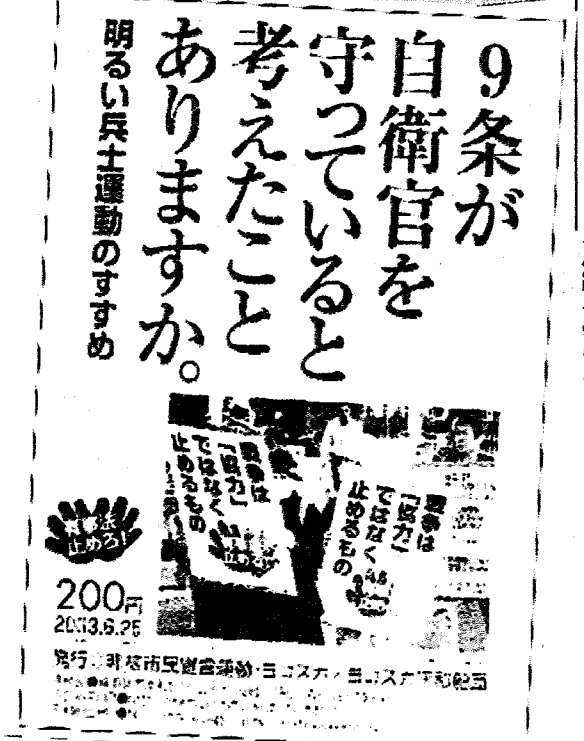 9条が
自衛官を
守っていると
考えたこと
ありますか。
明るい兵士運動のすすめ
戦争は
「反力」
ではなく
止めるもの
戦争は
「反力」
ではなく
止めるもの
止めろ!
200円
6.25
発行:非核市民宣言運動・ヨコスカ/ヨコスカ平和船団